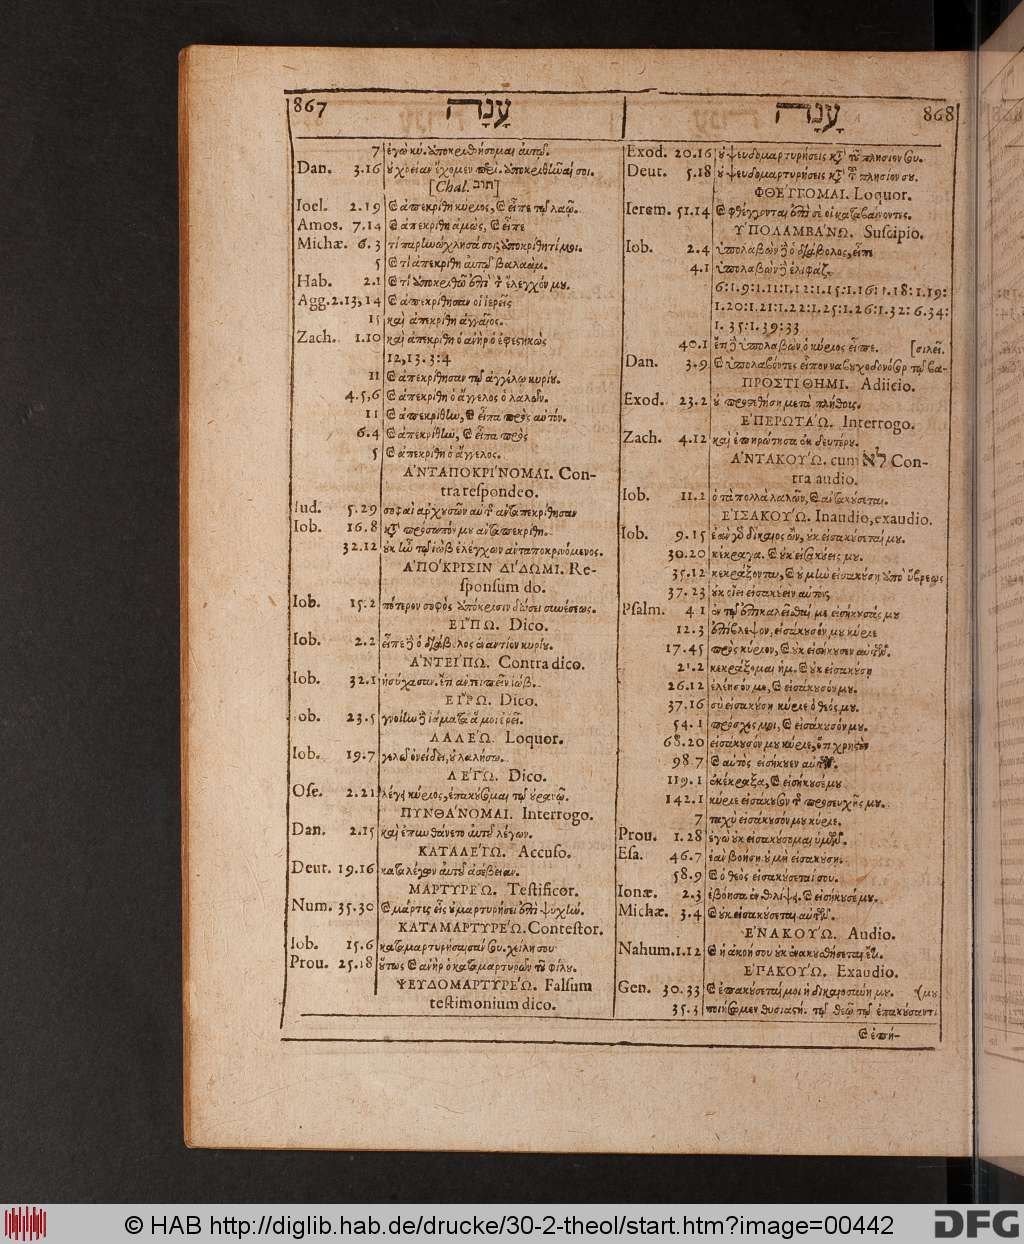 867 עָנָה
7 ἐγὼ κύ. ὑποκριθήσομαι αὐτῷ.
Dan. 3.16 οὐ χρείαν ἔχομεν περὶ. ὑποκριθῆναί σοι.
[Chal. תוב]
Ioel. 2.19 καὶ ἀπεκρίθη κύριος, καὶ εἶπε τῷ λαῷ.
Amos. 7.14 καὶ ἀπεκρίθη ἀμὼς, καὶ εἶπε
Michæ. 6.3 τί παρηνώχλησά σοι; ὑποκρίθητί μοι.
5 καὶ τί ἀπεκρίθη αὐτῷ βαλαάμ.
Hab. 2.1 καὶ τί ὑποκριθῶ ἐπὶ τὸν ἔλεγχόν μου.
Agg. 2.13,14 καὶ ἀπεκρίθησαν οἱ ἱερεῖς
15 καὶ ἀπεκρίθη ἀγγαῖος.
Zach. 1.10 καὶ ἀπεκρίθη ὁ ἀνὴρ ὁ ἐφεστηκὼς
12,13.3:4
11 καὶ ἀπεκρίθησαν τῷ ἀγγέλῳ κυρίου.
4.5,6 καὶ ἀπεκρίθη ὁ ἄγγελος ὁ λαλῶν.
11 καὶ ἀπεκρίθην, καὶ εἶπα πρὸς αὐτόν.
6.4 καὶ ἀπεκρίθην, καὶ εἶπα πρὸς
5 καὶ ἀπεκρίθη ὁ ἄγγελος.
ἈΝΤΑΠΟΚΡΊΝΟΜΑΙ. Con-
tra respondeo.
Iud. 5.29 σοφαὶ ἀρχουσῶν αὐτῆς ἀνταπεκρίθησαν
Iob. 16.8 κτ' πρόσωπόν μου ἀνταπεκρίθη.
32.12 οὐκ ἦν τῷ ἰὼβ ἐλέγχων ἀνταποκρινόμενος.
ἈΠΌΚΡΙΣΙΝ ΔΊΔΩΜΙ. Re-
sponsum do.
Iob. 15.2 πότερον σοφὸς ὑπόκρισιν δώσει συνέσεως.
ΕἼΠΩ. Dico.
Iob. 2.2 εἶπε δὲ ὁ διάβολος ἐναντίον κυρίου.
ἈΝΤΕΊΠΩ. Contra dico.
Iob. 32.1 ἡσύχασαν. ἔτι ἀντειπεῖν ἰώβ.
ΕἼΡΩ. Dico.
Iob. 23.5 γνοίην δὲ ἰάματα ἅ μοι ἐρεῖ.
ΛΑΛΈΩ. Loquor.
Iob. 19.7 γελῶ ὀνείδει, οὐ λαλήσω.
ΛΈΓΩ. Dico.
Ose. 2.21 λέγει κύριος, ἐπακούσομαι τῷ οὐρανῷ.
ΠΥΝΘΆΝΟΜΑΙ. Interrogo.
Dan. 2.15 καὶ ἐπυνθάνετο αὐτοῦ λέγων.
ΚΑΤΑΛΈΓΩ. Accuso.
Deut. 19.16 καταλέγων αὐτοῦ ἀσέβειαν.
ΜΑΡΤΥΡΈΩ. Testificor.
Num. 35.30 καὶ μάρτις εἷς οὐ μαρτυρήσει ἐπὶ ψυχὴν.
ΚΑΤΑΜΑΡΤΥΡΈΩ. Contestor.
Iob. 15.6 καταμαρτυρήσαισάν σου. χείλη σου
Prou. 25.18 οὕτως καὶ ἀνὴρ ὁ καταμαρτυρῶν τοῦ φίλου.
ΨΕΥΔΟΜΑΡΤΥΡΈΩ. Falsum
testimonium dico.
עָנָה 868
Exod. 20.16 οὐ ψευδομαρτυρήσεις κτ' τοῦ πλησίον σου.
Deut. 5.18 οὐ ψευδομαρτυρήσεις κτ' τοῦ πλησίον σου.
ΦΘΈΓΓΟΜΑΙ. Loquor.
Ierem. 51.14 καὶ φθέγξονται ἐπὶ σὲ οἱ καταβαίνοντες.
ὙΠΟΛΑΜΒΆΝΩ. Suscipio.
Iob. 2.4 ὑπολαβὼν δὲ ὁ διάβολος, εἶπε
4.1 ὑπολαβὼν δὲ ἐλιφάζ.
6:1.9:1.11:1.12:1.15:1.16:1.18:1.19:
1.20:1.21:1.22:1.25:1.26:1.32:6.34:
1.35:1.39:33
40.1 ἔτι δὲ ὑπολαβὼν ὁ κύριος εἶπε. [σιλεῖ.
Dan. 3.9 καὶ ὑπολαβόντες εἶπον ναβουχοδονόσορ τῷ βα-
ΠΡΟΣΤΊΘΗΜΙ. Adiicio.
Exod. 23.2 οὐ προστεθήσῃ μετὰ πλήθοις.
ἘΠΕΡΩΤΆΩ. Interrogo.
Zach. 4.12 καὶ ἐπηρώτησα ἐκ δευτέρου.
ἈΝΤΑΚΟΎΩ. cum לֹא Con-
tra audio.
Iob. 11.2 ὁ τὰ πολλὰ λαλῶν, καὶ ἀντακούσεται.
ΕἸΣΑΚΟΎΩ. Inaudio, exaudio.
Iob. 9.15 ἐὰν γὰρ δίκαιος ὦν, οὐκ εἰσακούσεταί μου.
30.20 κέκραγα. καὶ οὐκ εἰσακούεις μου.
35.12 κεκράξονται, καὶ οὐ μὴν εἰσακούσῃ ὑπὸ ὕβρεως
37.23 οὐκ οἴει εἰσακούειν αὐτόν;
Psalm. 4.1 ἐν τῷ ἐπικαλεῖσθαί με εἰσήκουσάς μου
12.3 ἐπίβλεψον, εἰσάκουσόν μου κύριε
17.45 πρὸς κύριον, καὶ οὐκ εἰσήκουσεν αὐτῶν.
21.2 κεκράξομαι ἡμ. καὶ οὐκ εἰσακούσῃ
26.12 ἐλέησόν με, καὶ εἰσάκουσόν μου.
37.16 σὺ εἰσακούσῃ κύριε ὁ θεός μου.
54.1 πρόσχες μοι, καὶ εἰσάκουσόν μου.
68.20 εἰσάκουσόν μου κύριε, ὅτι χρηστὸν
98.7 καὶ αὐτὸς εἰσήκουεν αὐτῶν.
119.1 ἐκέκραξα, καὶ εἰσήκουσέ μου
142.1 κύριε εἰσάκουσον τῆς προσευχῆς μου.
7 ταχὺ εἰσάκουσόν μου κύριε.
Prou. 1.28 ἐγὼ οὐκ εἰσακούσομαι ὑμῶν.
Esa. 46.7 ἐὰν βοήσῃ. οὐ μὴ εἰσακούσῃ.
58.9 καὶ ὁ θεὸς εἰσακούσεταί σου.
Ionæ. 2.3 ἐβόησα ἐν θλίψει. καὶ εἰσήκουσέ μου.
Michæ. 3.4 καὶ οὐκ εἰσακούσεται αὐτῶν.
ἘΝΑΚΟΎΩ. Audio.
Nahum. 1.12 καὶ ἡ ἀκοή σου οὐκ ἐνακουσθήσεται ἔτι.
ἘΠΑΚΟΎΩ. Exaudio.
Gen. 30.33 καὶ ἐπακούσεταί μοι ἡ δικαιοσύνη μου. {μου
35.3 ποιήσωμεν θυσιαστή. τῷ θεῷ τῷ ἐπακούσαντί
καὶ ἐπή-
© HAB http://diglib.hab.de/drucke/30-2-theol/start.htm?image=00442
DFG